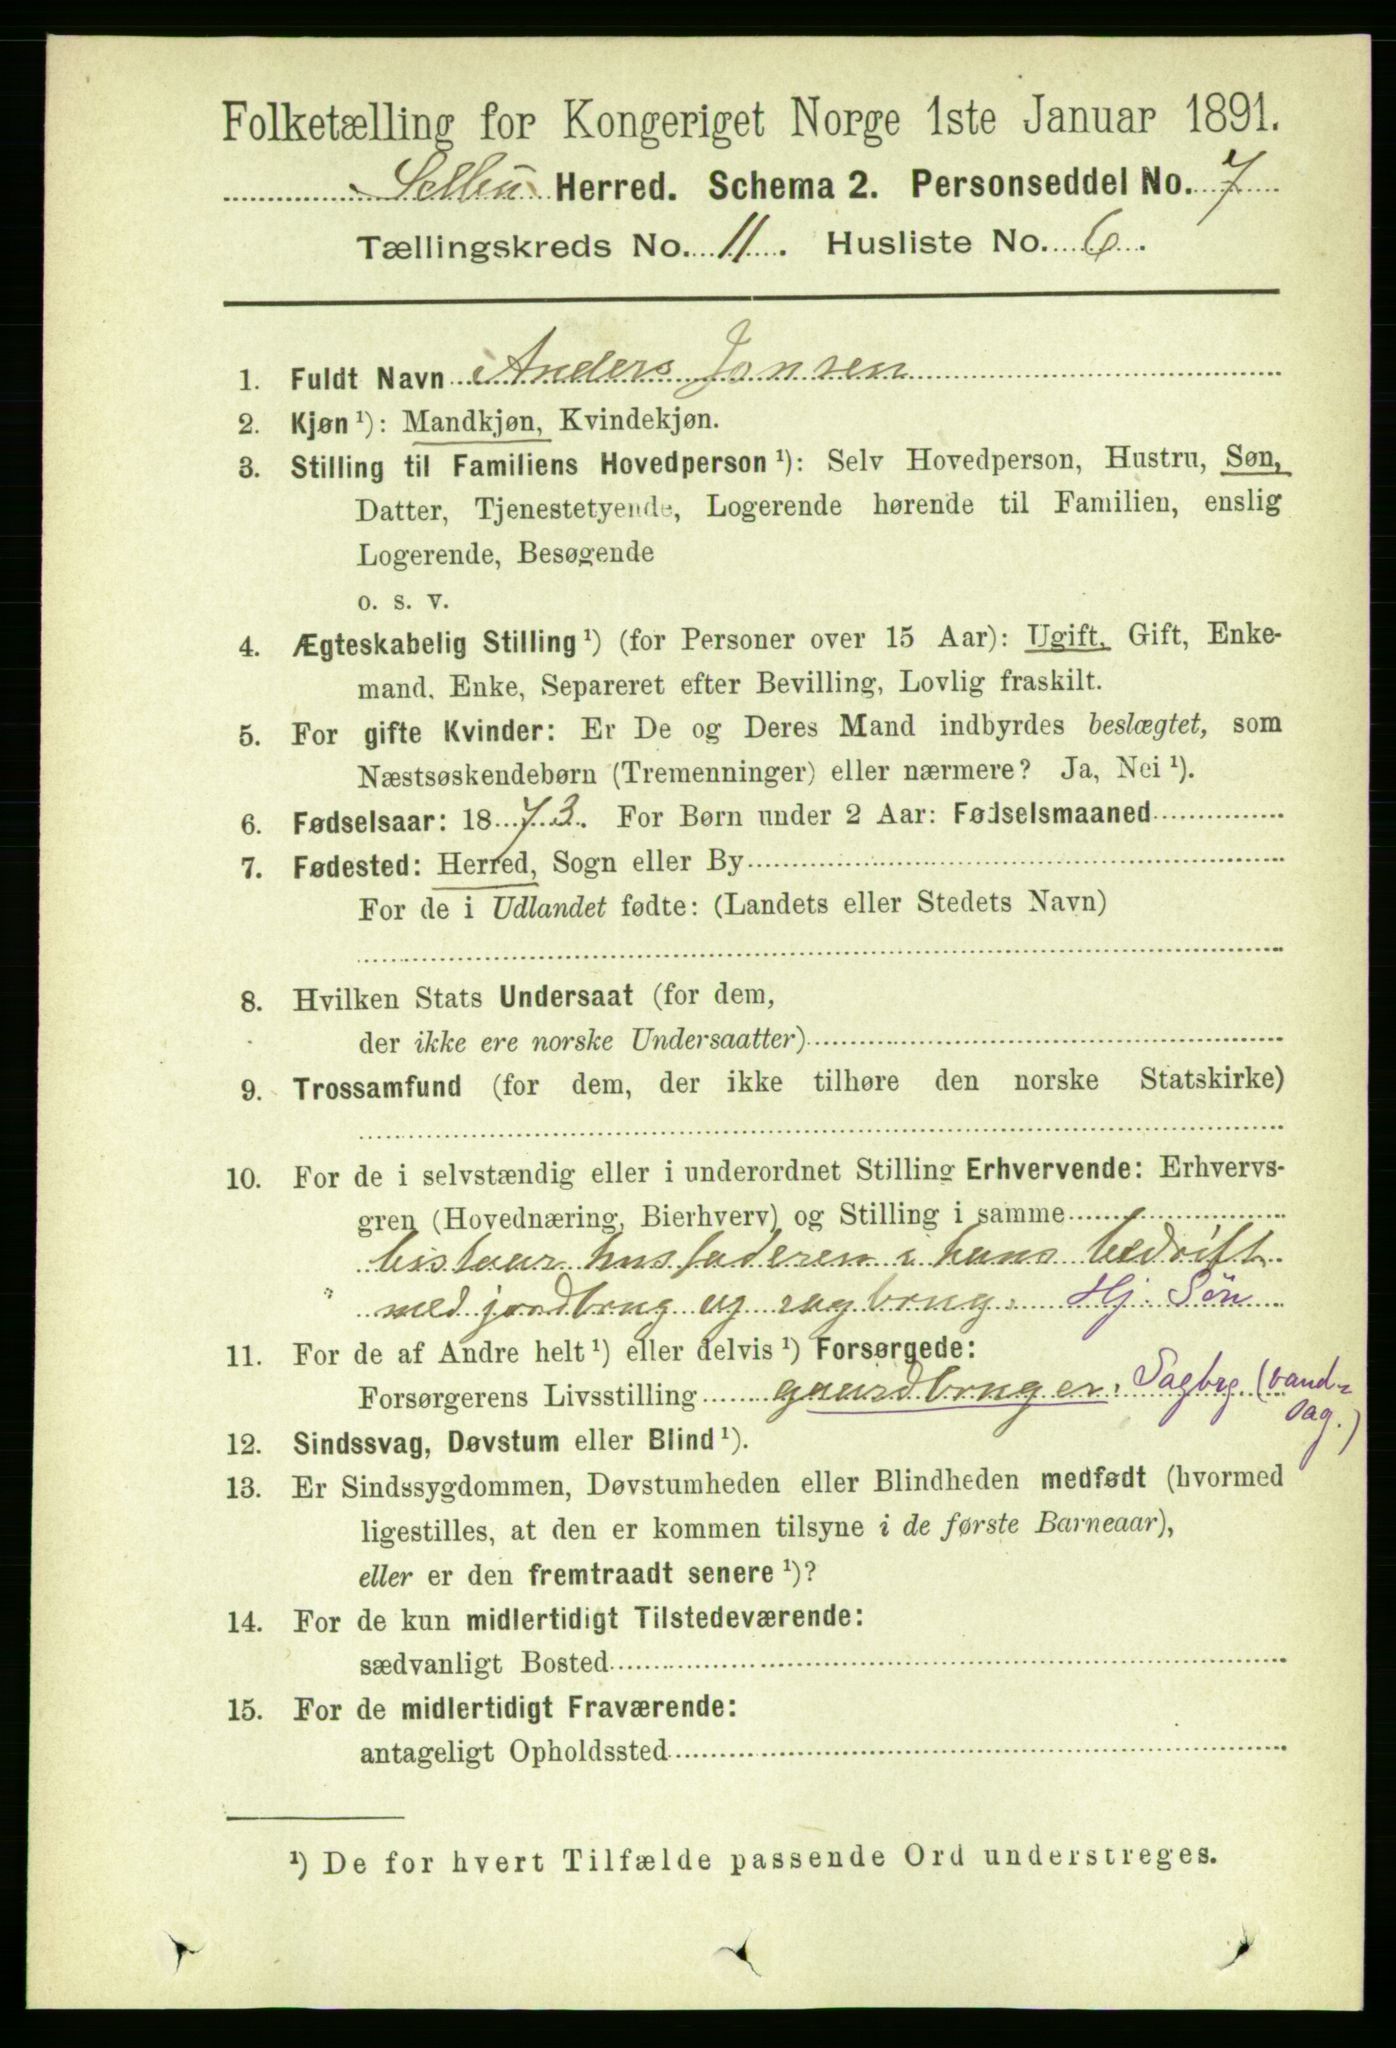 Folketælling for Kongeriget Norge 1ste Januar 1891.
Selbu Herred. Schema 2. Personseddel No. 7
Tællingskreds No. 11. Husliste No. 6.
1. Fuldt Navn Anders Jonsen
2. Kjøn ¹): Mandkjøn, Kvindekjøn.
3. Stilling til Familiens Hovedperson ¹): Selv Hovedperson, Hustru, Søn,
Datter, Tjenestetyende, Logerende hørende til Familien, enslig
Logerende, Besøgende
o. s. v.
4. Ægteskabelig Stilling ¹) (for Personer over 15 Aar): Ugift, Gift, Enke-
mand, Enke, Separeret efter Bevilling, Lovlig fraskilt.
5. For gifte Kvinder: Er De og Deres Mand indbyrdes beslægtet, som
Næstsøskendebørn (Tremenninger) eller nærmere? Ja, Nei ¹).
6. Fødselsaar: 1873. For Børn under 2 Aar: Fødselsmaaned
7. Fødested: Herred, Sogn eller By
For de i Udlandet fødte: (Landets eller Stedets Navn)
8. Hvilken Stats Undersaat (for dem,
der ikke ere norske Undersaatter)
9. Trossamfund (for dem, der ikke tilhøre den norske Statskirke)
10. For de i selvstændig eller i underordnet Stilling Erhvervende: Erhvervs-
gren (Hovednæring, Bierhverv) og Stilling i samme
bistaar husfaderen i hans bedrift
med jordbrug og sagbrug. Hj. Søn
11. For de af Andre helt ¹) eller delvis ¹) Forsørgede:
Forsørgerens Livsstilling gaardbruger. Sagbrg (vand-
sag.)
12. Sindssvag, Døvstum eller Blind ¹).
13. Er Sindssygdommen, Døvstumheden eller Blindheden medfødt (hvormed
ligestilles, at den er kommen tilsyne i de første Barneaar),
eller er den fremtraadt senere ¹)?
14. For de kun midlertidigt Tilstedeværende:
sædvanligt Bosted
15. For de midlertidigt Fraværende:
antageligt Opholdssted
¹) De for hvert Tilfælde passende Ord understreges.